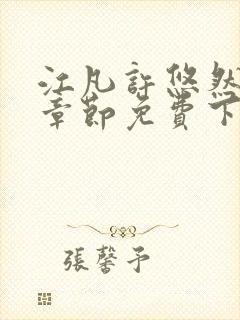 江凡許悠然
章節免費下
張馨予